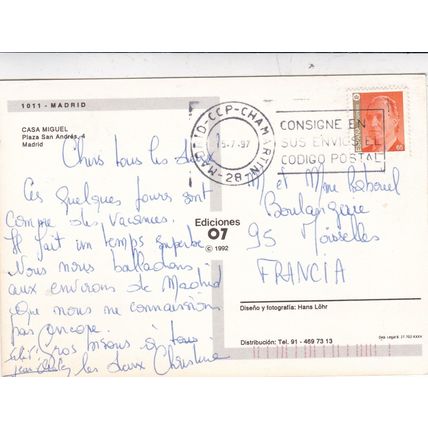 1011 - MADRID
CASA MIGUEL
Plaza San Andrés, 4
Madrid
MADRID-CCP-CHAMARTIN
15-7-97
-28-
CONSIGNE EN
SUS ENVIOS EL
CODIGO POSTAL
Chers tous les deux
Ces quelques jours sont
comme des vacances.
Il fait un temps superbe
Nous nous balladons
aux environs de Madrid
que nous ne connaissions
pas encore.
Gros bisous à tous
les deux Christine
Ediciones
07
© 1992
M et Mme
Boulangerie
95 Moisselles
FRANCIA
Diseño y fotografía: Hans Löhr
Distribución: Tel. 91 - 469 73 13